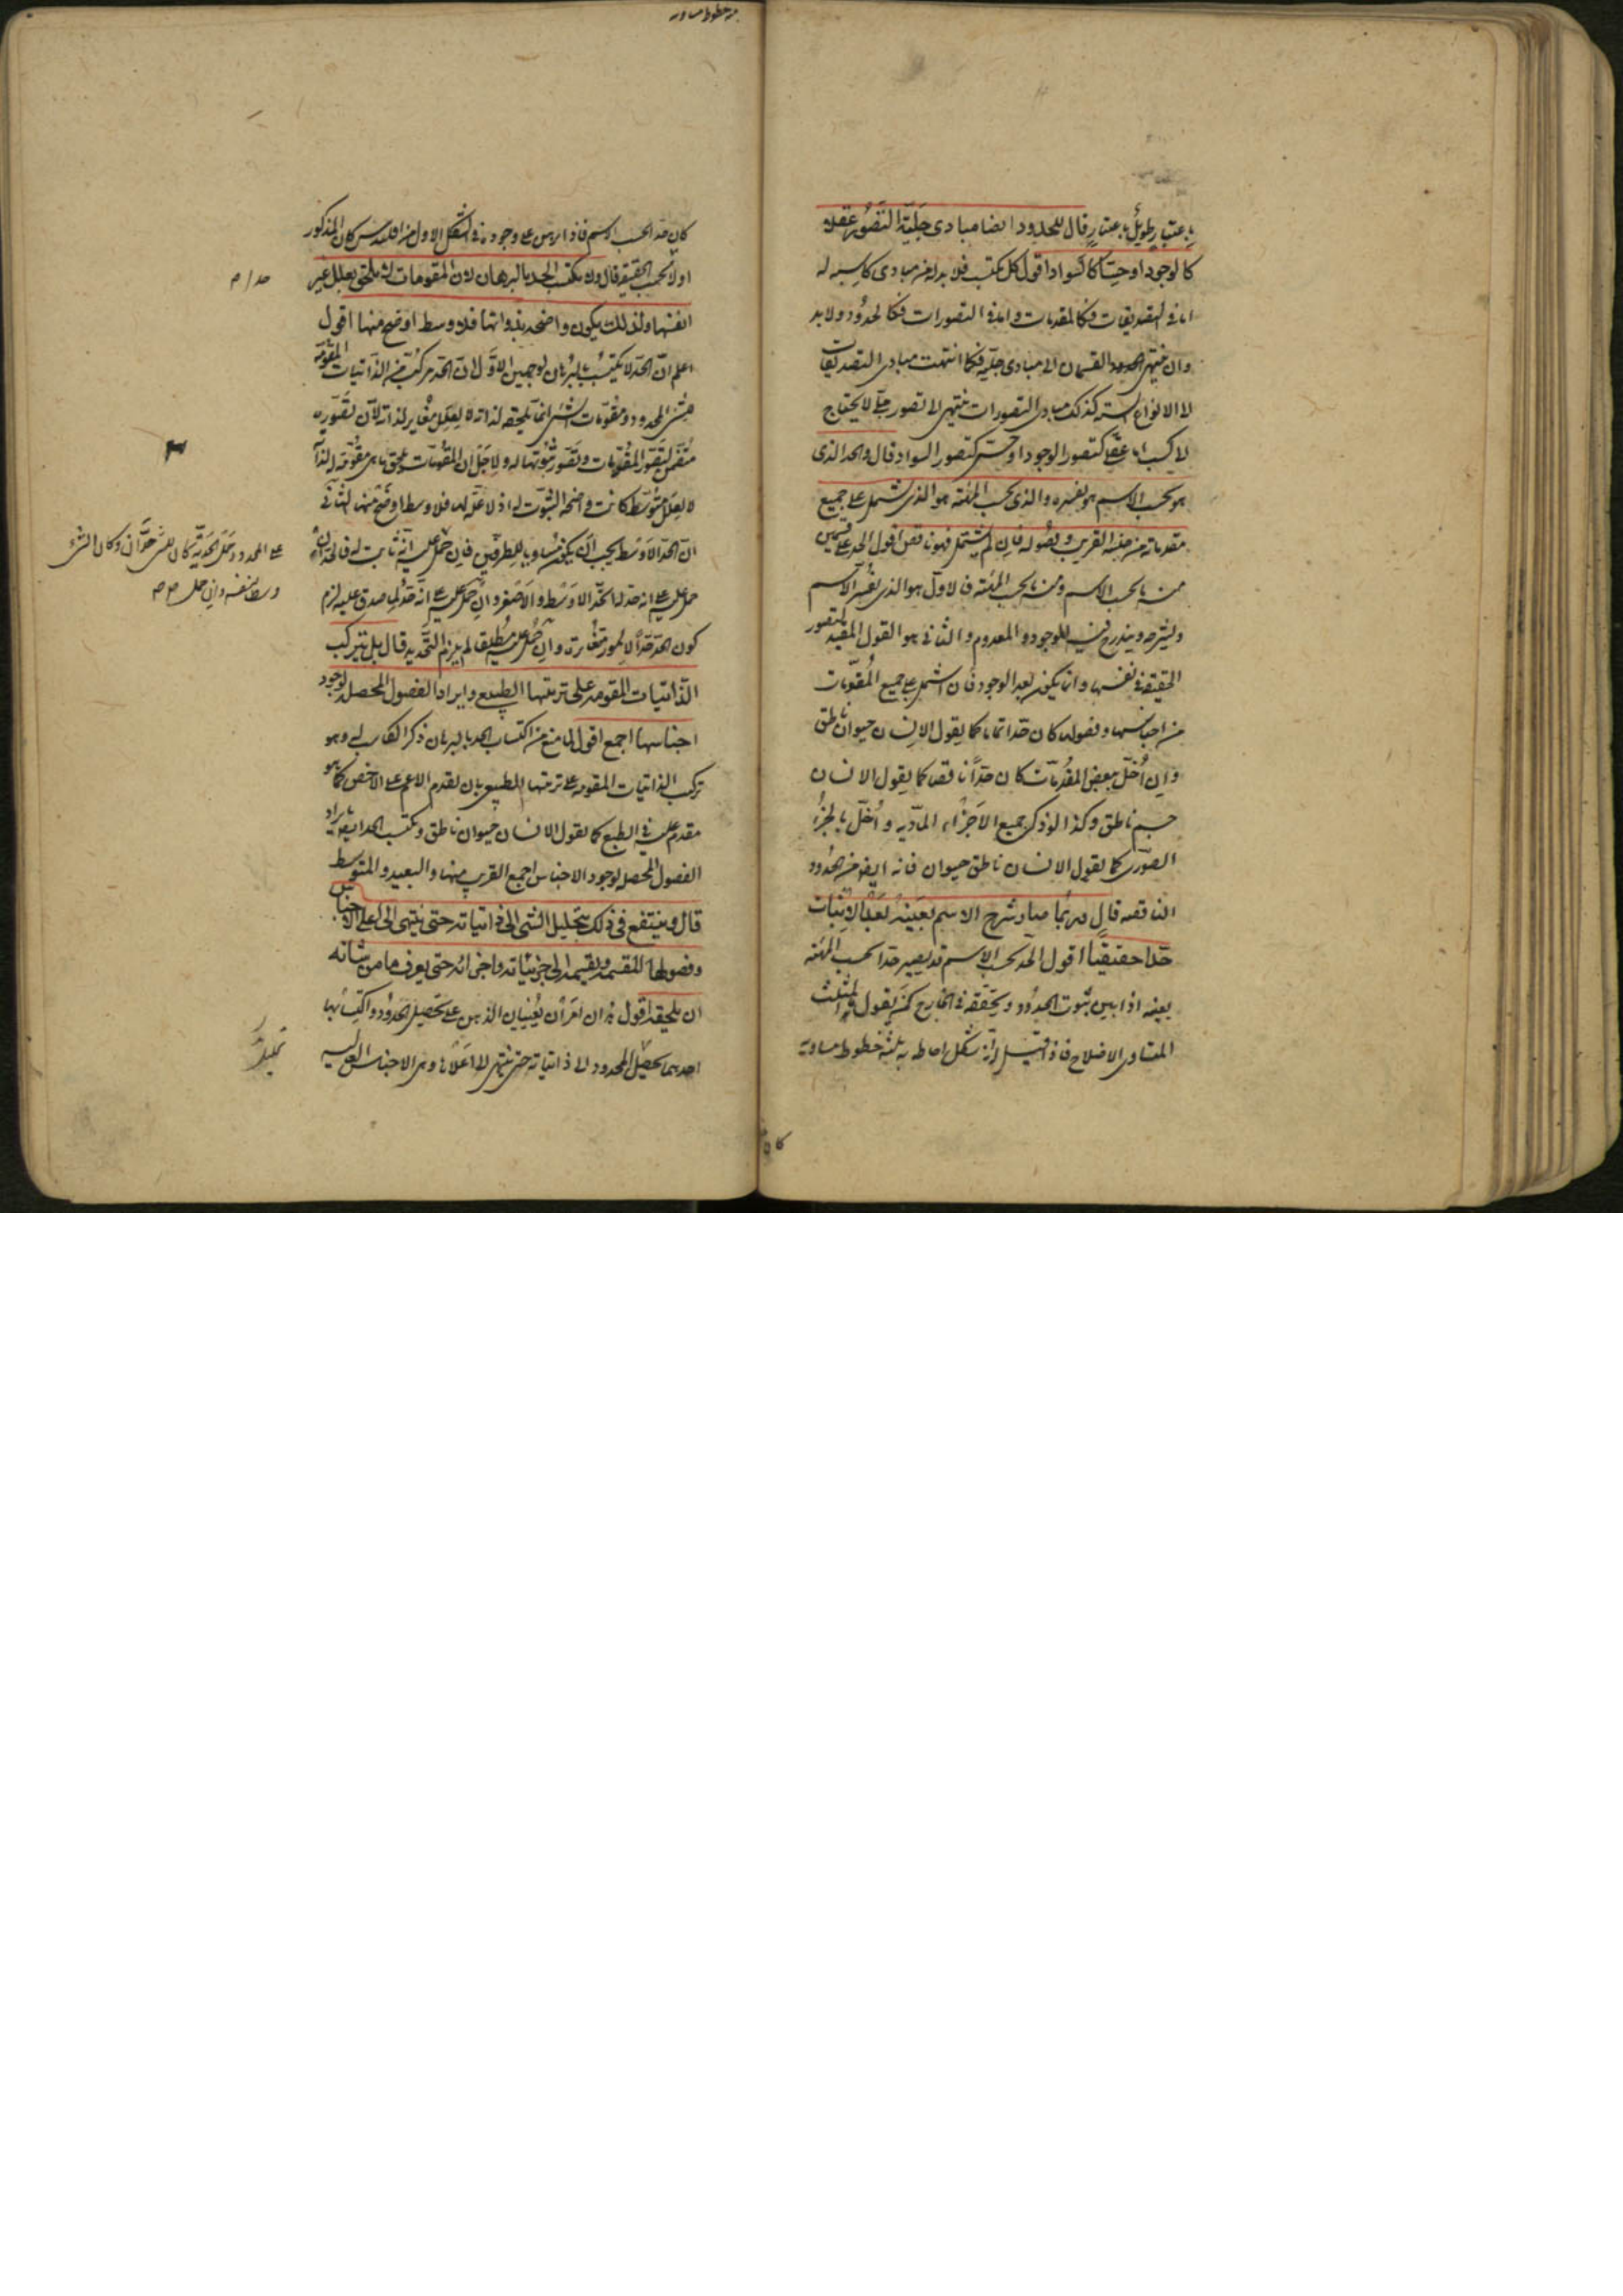 باعتبار طويل باعتبار قال للحدود ايضا مبادى جلية التصور عقلا
كالوجود او حسا كالسواد اقول كل مكتسب فلا بد له من مبادى كاسبة له
اما فى التصديقات فكالمقدمات واما فى التصورات فكالحدود ولا بد
وان ينتهى القسمان الى مبادى جلية فكما انتهت مبادى التصديقات
الى الانواع الستة كذلك مبادى التصورات ينتهى الى تصور جلى لا يحتاج
الى كسب اما عقلى كتصور الوجود او حسى كتصور السواد قال والحد الذى
هو بحسب الاسم هو تفسيره والذى بحسب المهية هو الذى يشتمل على جميع
مقدماته من جنسه القريب وفصوله فان لم يشتمل فهو ناقص اقول الحد على قسمين
منه ما بحسب الاسم ومنه ما بحسب المهية فالاول هو الذى يفسر الاسم
ويشرحه ويندرج فيه الموجود والمعدوم والثانى هو القول المفيد لتصور
الحقيقة فى نفسها وانما يكون بعد الوجود فان اشتمل على جميع المقومات
من اجناسها وفصولها كان حدا تاما كما يقول الانسان حيوان ناطق
وان اخل ببعض المقومات كان حدا ناقصا كما يقول الانسان
جسم ناطق وكذا لو ذكر جميع الاجزاء المادية واخل بالجزء
الصورى كما يقول الانسان ناطق حيوان فانه ايضا من الحدود
الناقصة قال وربما صار شرح الاسم بعينه بعد الاثبات
حدا حقيقيا اقول الحد بحسب الاسم قد يصير حدا بحسب المهية
بعينه اذا بين ثبوت المحدود وتحققه فى الخارج كمن يقول المثلث
المتساوى الاضلاع فاذا قيل له انه شكل احاط به ثلثة خطوط متساوية
كان
من خطوط متساوية
كان حدا بحسب الاسم فاذا برهن على وجوده فى الشكل الاول من اقليدس كان المذكور
اولا بحسب الحقيقة قال ولا يكتسب الحد بالبرهان لان المقومات لا يلحق بعلل غير
انفسها ولذلك يكون واضحة بذواتها فلا وسط اوضح منها اقول
اعلم ان الحد لا يكتسب بالبرهان لوجهين الاول ان الحد مركب من الذاتيات المقومة
للشىء المحدود ومقومات الشىء انما يلحقه لذاته لا بعلل مغاير لذاته لان تصوره
متضمن لتصور المقومات وتصور ثبوتها له ولاجل ان المقومات يلحق ما هى مقومة له لذاتها
لا بعلل متوسط كانت واضحة الثبوت له اذ لا علة لها فلا وسط اوضح منها الثانى
ان الحد الاوسط يجب ان يكون مساويا للطرفين فان حمل عليه انه ثابت له
حمل عليه على انه حد له الحد الاوسط والاصغر وان حمل عليه على انه حد لما صدق عليه لزم
كون الحد حدا لامور متغايرة وان حمل عليه مطلقا لم يلزم التحديد قال بل بتركيب
الذاتيات المقومة على ترتيبها الطبيعى وايراد الفصول المحصلة لوجود
اجناسها اجمع اقول لما منع من اكتساب الحد بالبرهان ذكر الكاسب له وهو
تركيب الذاتيات المقومة على ترتيبها الطبيعى بان يقدم الاعم على الاخص كما هو
مقدم عليه فى الطبع كما يقول الانسان حيوان ناطق ويكتسب الحد ايضا بايراد
الفصول المحصلة لوجود الاجناس اجمع القريب منها والبعيد والمتوسط
قال وينتفع فى ذلك بتحليل الشئ الى ذاتياته حتى ينتهى الى اعلى الاجناس
وفصولها المقسمة وبقسمة الى جزئياته واجزائه حتى يعرف ما من شانه
ان يلحقه اقول هذان امران يعينان الذهن على تحصيل الحدود واكتسابها
احدهما تحصيل المحدود الى ذاتياته حتى ينتهى الى اعلاها وهى الاجناس العالية
حدا
على المحدود وحمل الحدية كان للشىء حدان وكان الشىء
وسطا لنفسه وان حمل
تحليل